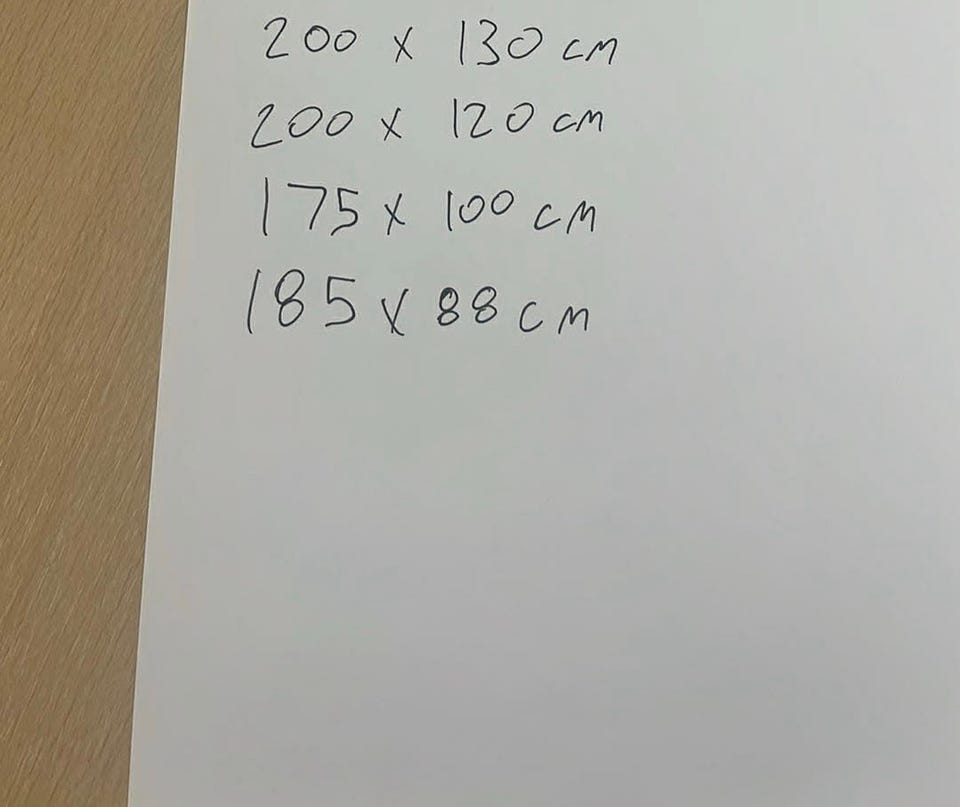 200 x 130 cm
200 x 120 cm
175 x 100 cm
185 x 88 cm